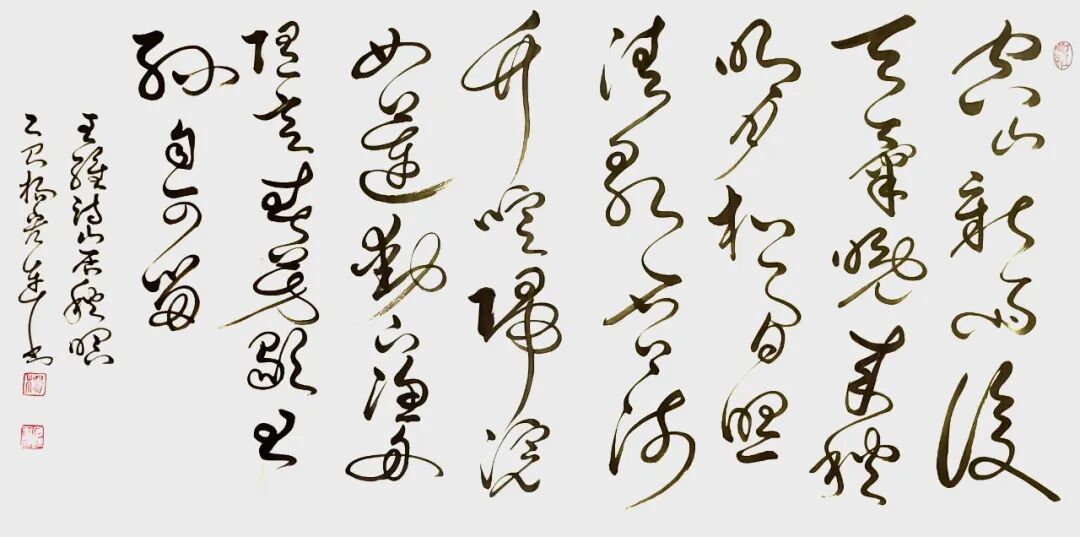 空山新雨後
天氣晚來秋
明月松間照
清泉石上流
竹喧歸浣
女蓮動下漁舟
隨意春芳歇王
孫自可留
王維詩山居秋暝
乙巳楊